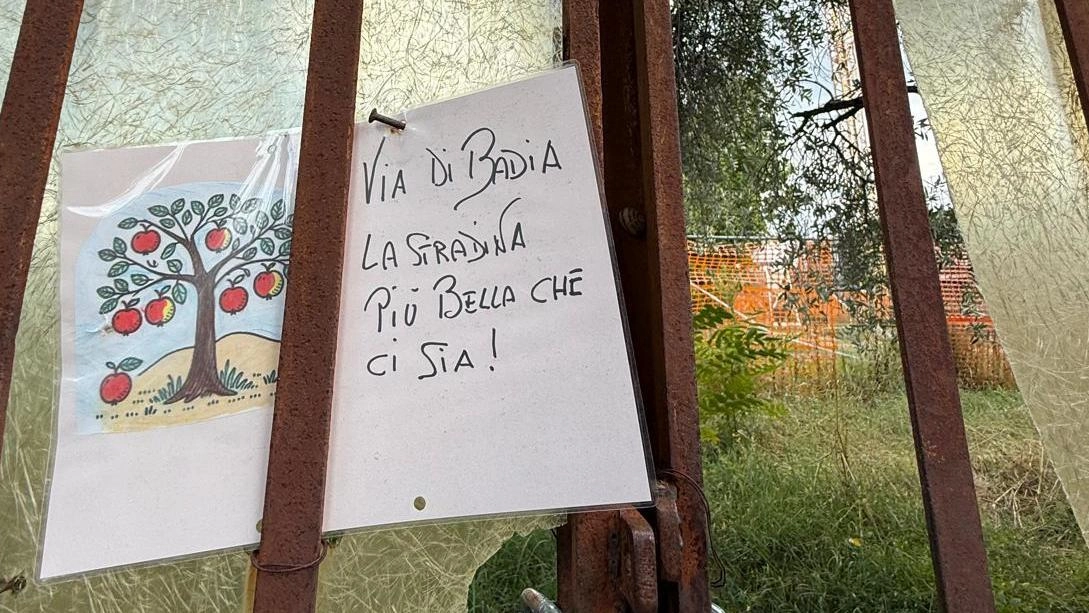 VIA DI BADIA
LA STRADINA
PIÙ BELLA CHE
CI SIA!